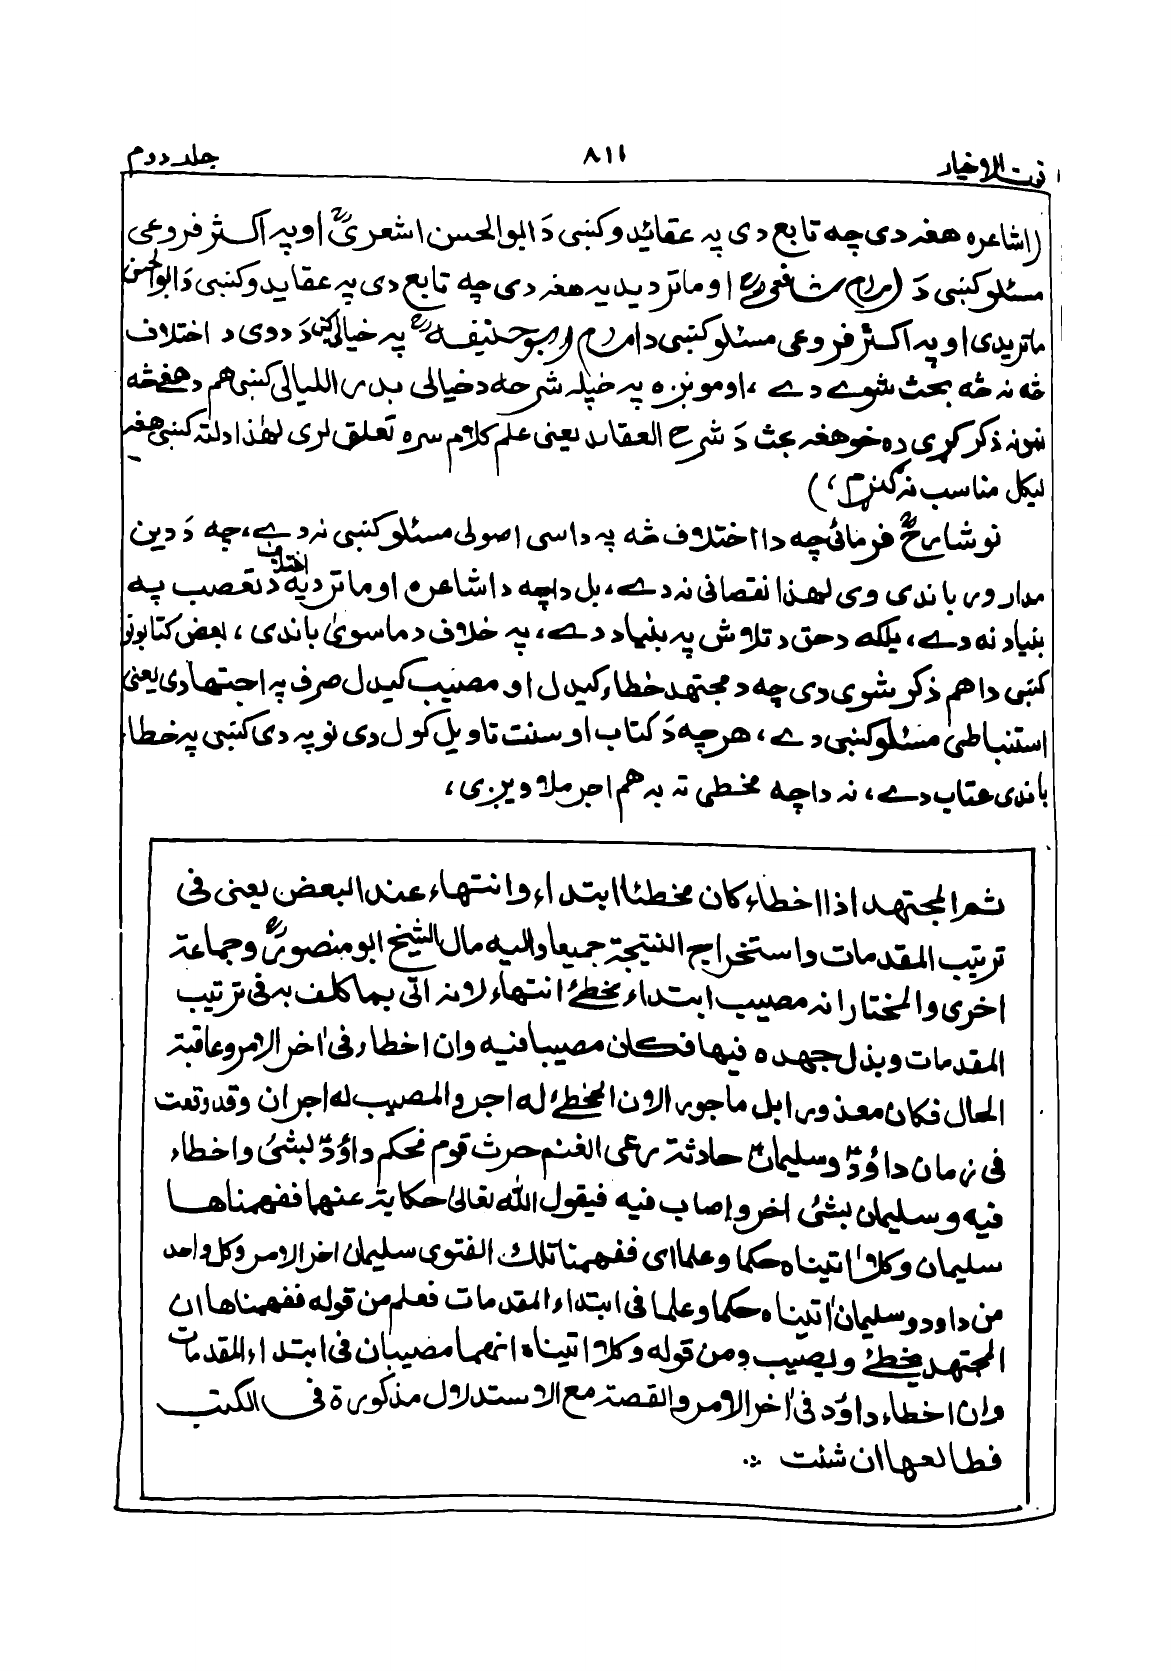 قوت الاخیار ۸۱۱ جلد دوم
(اشاعره هغه دی چه تابع دی په عقائدو کښی دَ ابوالحسن اشعریؒ او په اکثر فروعی
مسئلو کښی دَ امام شافعیؒ او ماتردیدیه هغه دی چه تابع دی په عقایدو کښی دَ ابوالحسن
ماتریدی او په اکثر فروعی مسئلو کښی د امام ابو حنیفهؒ په خیالی کښ دَ دوی د اختلاف
څه نه څه بحث شوے دے ، او مونږه په خپله شرحه د خیالی بدر اللیالی کښی هم د هغے څه
نمونه ذکر کړی ده خو هغه بحث دَ شرح العقائد یعنی علم کلام سره تعلق لری لهٰذا دلته کښی هغه
لیکل مناسب نه ګنړم ،)
نو شارحؒ فرمائی چه دا اختلاف څه په داسی اصولی مسئلو کښی نه دے ، چه دَ دین
مدار ور باندی وی لهذا نقصانی نه دے ، بل دا چه د اشاعره او ماتردیه اختلاف دَ تعصب په
بنیاد نه دے ، بلکه د حق د تلاش په بنیاد دے ، په خلاف د ماسویٰ باندی ، بعض کتابونو
کښی دا هم ذکر شوی دی چه د مجتهد خطاء کیدل او مصیب کیدل صرف په اجتهادی یعنی
استنباطی مسئلو کښی دے ، هر چه دَ کتاب او سنت تاویل کول دی نو په دی کښی په خطا
باندی عتاب دے ، نه دا چه مخطی ته به هم اجر ملاویږی ،
ثم المجتهد اذا اخطاء کان مخطئا ابتداء وانتهاء عند البعض یعنی فی
ترتیب المقدمات واستخراج النتیجة جمیعا والیه مال الشیخ ابو منصورؒ وجماعة
اخری والمختار انه مصیب ابتداء مخطئ انتهاء لانه اتی بما کلف به فی ترتیب
المقدمات وبذل جهده فیها فکان مصیبا فیه وان اخطاء فی اٰخر الامر وعاقبة
الحال فکان معذورا بل ماجورا لان المخطئ له اجر والمصیب له اجران وقد وقعت
فی زمان داوٗدؑ وسلیمانؑ حادثة رعی الغنم حرث قوم فحکم داوٗدؑ بشئ واخطاء
فیه وسلیمان بشئ اخر واصاب فیه فیقول اللّٰه تعالیٰ حکایة عنهما ففهمناها
سلیمان وکلا اٰتیناه حکما وعلما ای ففهمنا تلک الفتوی سلیمان اخر الامر وکل واحد
من داود وسلیمان اٰتیناه حکما وعلما فی ابتداء المقدمات فعلم من قوله ففهمناها ان
المجتهد یخطئ ویصیب ومن قوله وکلا اتیناه انهما مصیبان فی ابتداء المقدمات
وان اخطاء داوٗد فی اٰخر الامر والقصة مع الاستدلال مذکورة فی الکتب
فطالعها ان شئت